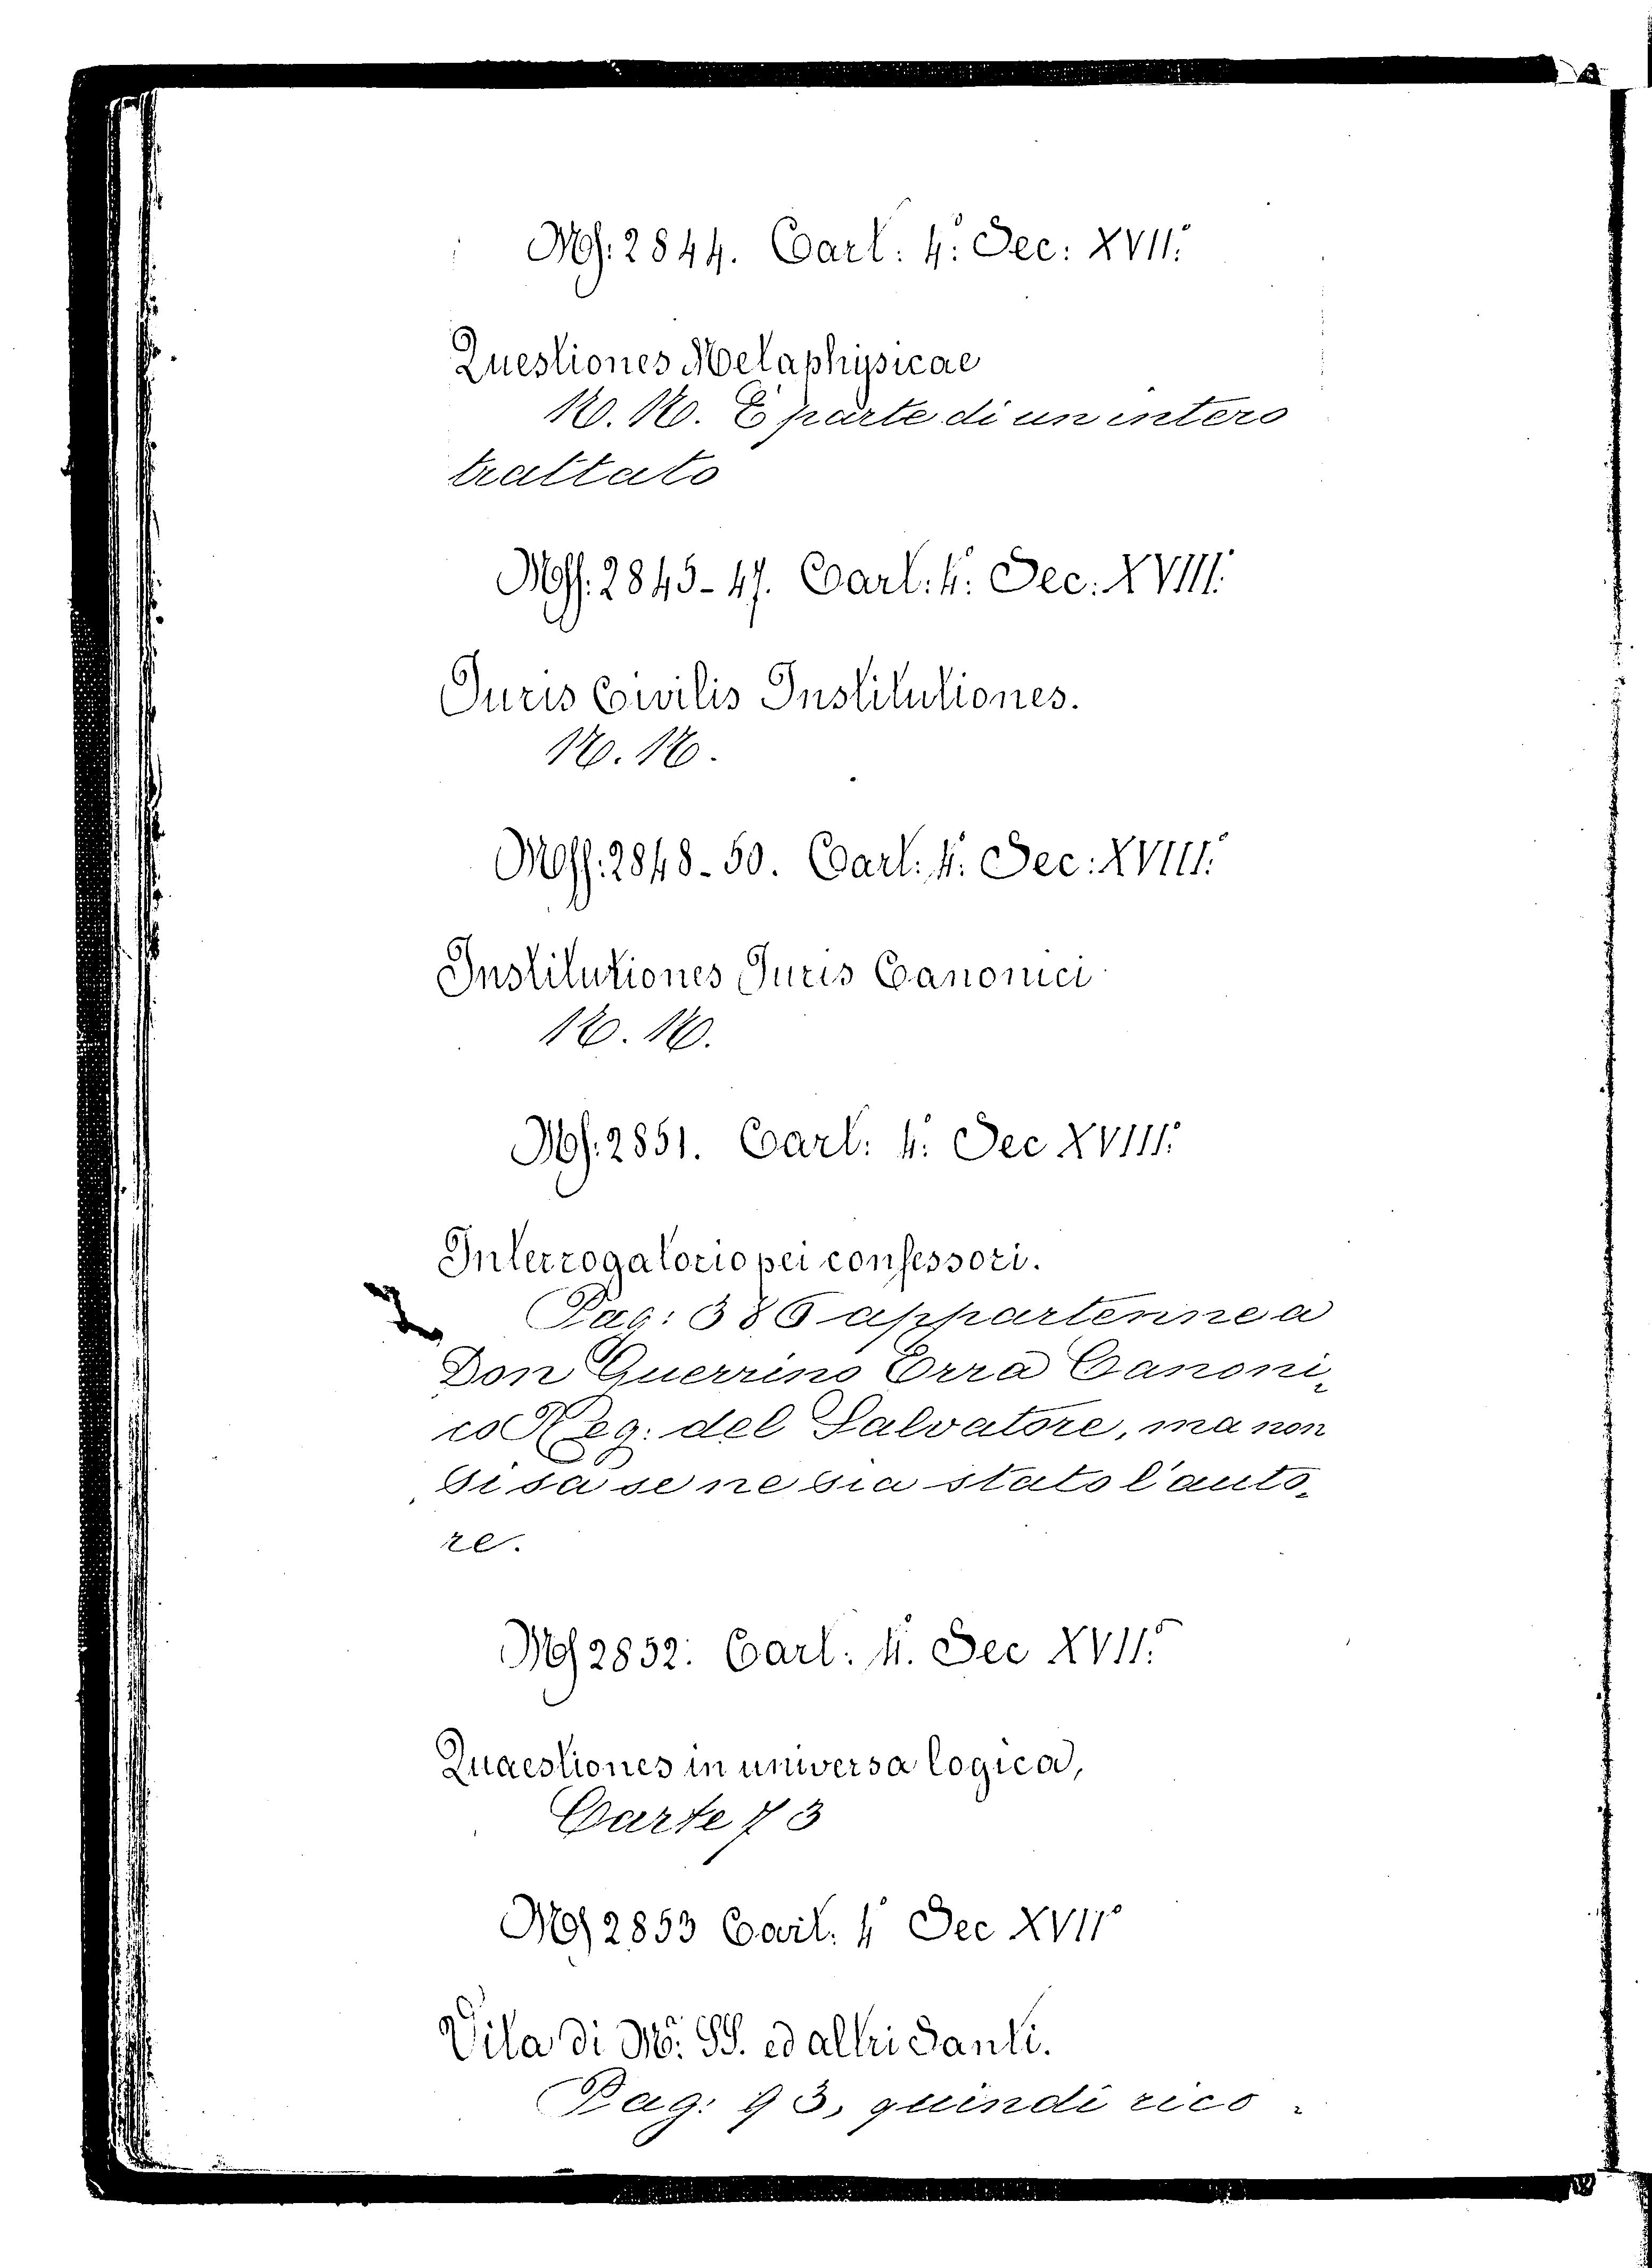 Ms: 2844. Cart: 4.° Sec: XVII.°
Questiones Metaphysicae
N. N. È parte di un intero
trattato
Mss: 2845-47. Cart: 4.° Sec: XVIII.°
Juris Civilis Institutiones.
N. N.
Mss: 2848-50. Cart: 4.° Sec: XVIII.°
Institutiones Juris Canonici
N. N.
Ms: 2851. Cart: 4.° Sec XVIII.°
Interrogatorio pei confessori.
Pag: 386 appartenne a
Don Guerrino Erra Canoni-
co Reg: del Salvatore, ma non
si sa se ne sia stato l'auto-
re.
Ms 2852: Cart: 4.° Sec XVII.°
Quaestiones in universa logica,
Carte 73
Ms 2853 Cart: 4° Sec XVII°
Vita di M.ª SS. ed altri Santi.
Pag: 93, quindi rico-